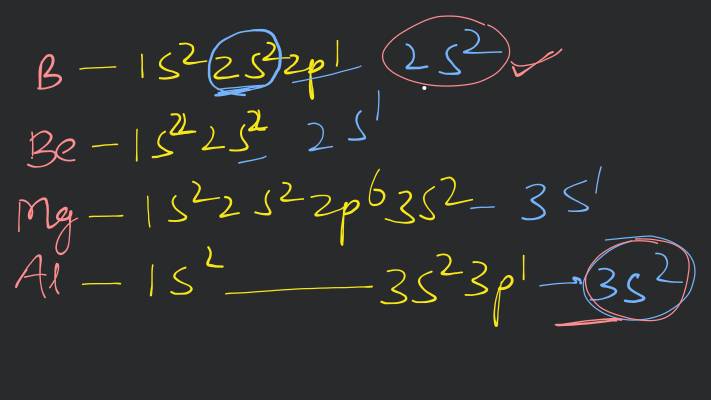 B — 1s² 2s² 2p¹ 2s²
Be — 1s² 2s² 2s¹
Mg — 1s² 2s² 2p⁶ 3s² – 3s¹
Al — 1s² ——— 3s² 3p¹ → 3s²